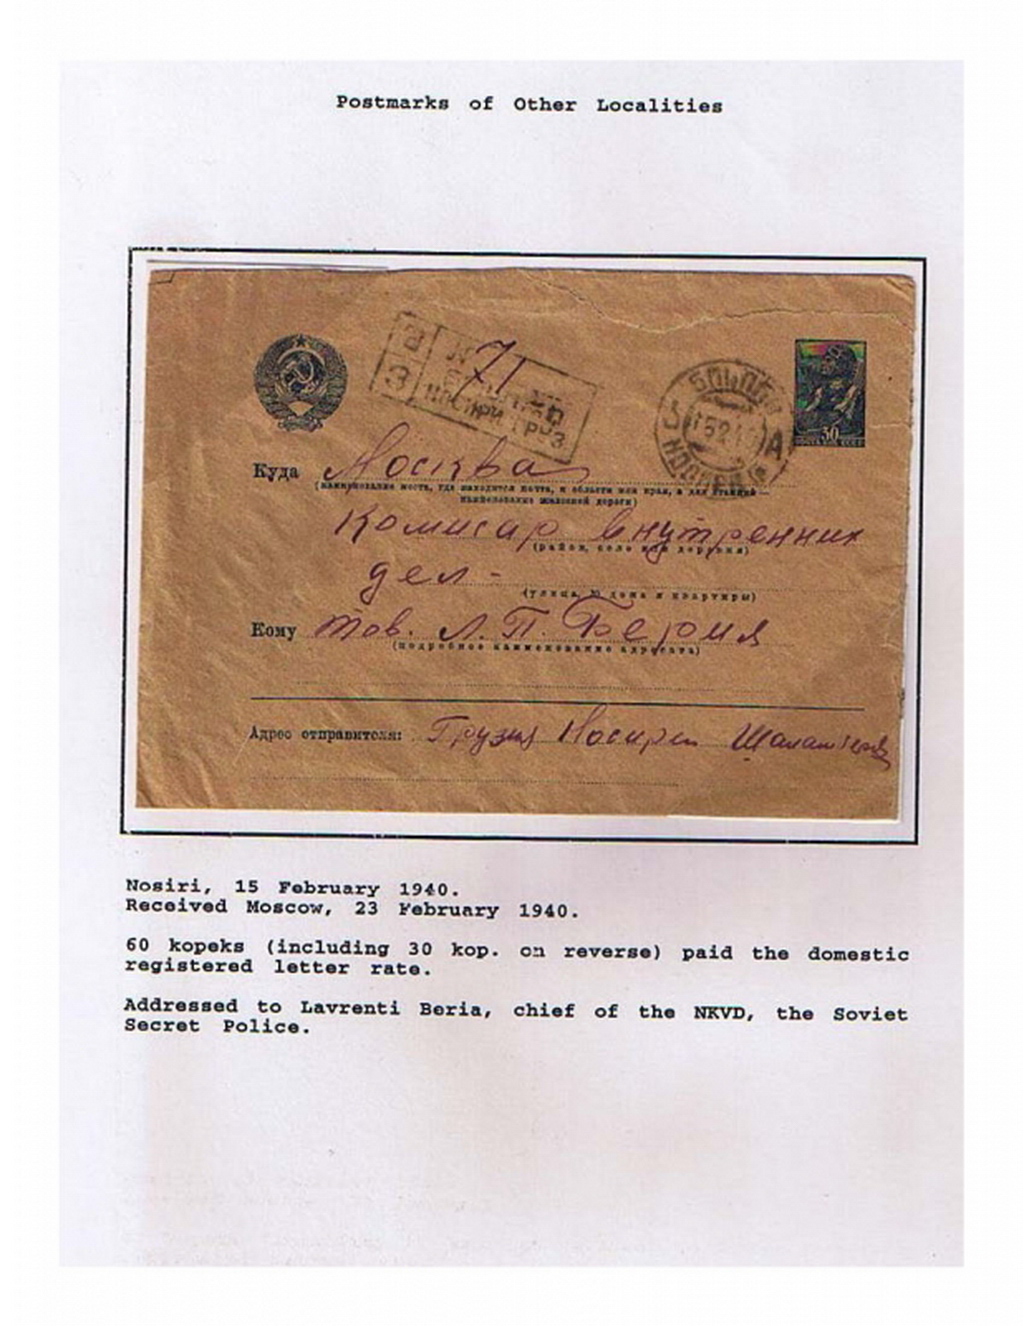 Postmarks of Other Localities
З
З
71
НОСИРИ ГРУЗ
ნოსირი
15 2 4
А
30
ПОЧТА СССР
Куда Москва
(наименование места, где находится почта, и области или края, а для станций —
наименование железной дороги)
Комисар внутренних
(район, село или деревня)
дел -
(улица, № дома и квартиры)
Кому тов. Л. П. Берия
(подробное наименование адресата)
Адрес отправителя: Грузия Носири
Nosiri, 15 February 1940.
Received Moscow, 23 February 1940.
60 kopeks (including 30 kop. on reverse) paid the domestic
registered letter rate.
Addressed to Lavrenti Beria, chief of the NKVD, the Soviet
Secret Police.